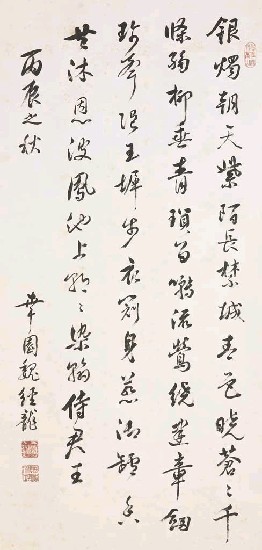 銀燭朝天紫陌長禁城春色曉蒼〻千
條弱柳垂青瑣百囀流鶯繞建章劍
珮聲隨玉墀步衣冠身惹御爐香
共沐恩波鳳池上朝〻染翰侍君王
丙辰之秋
華國魏經龍